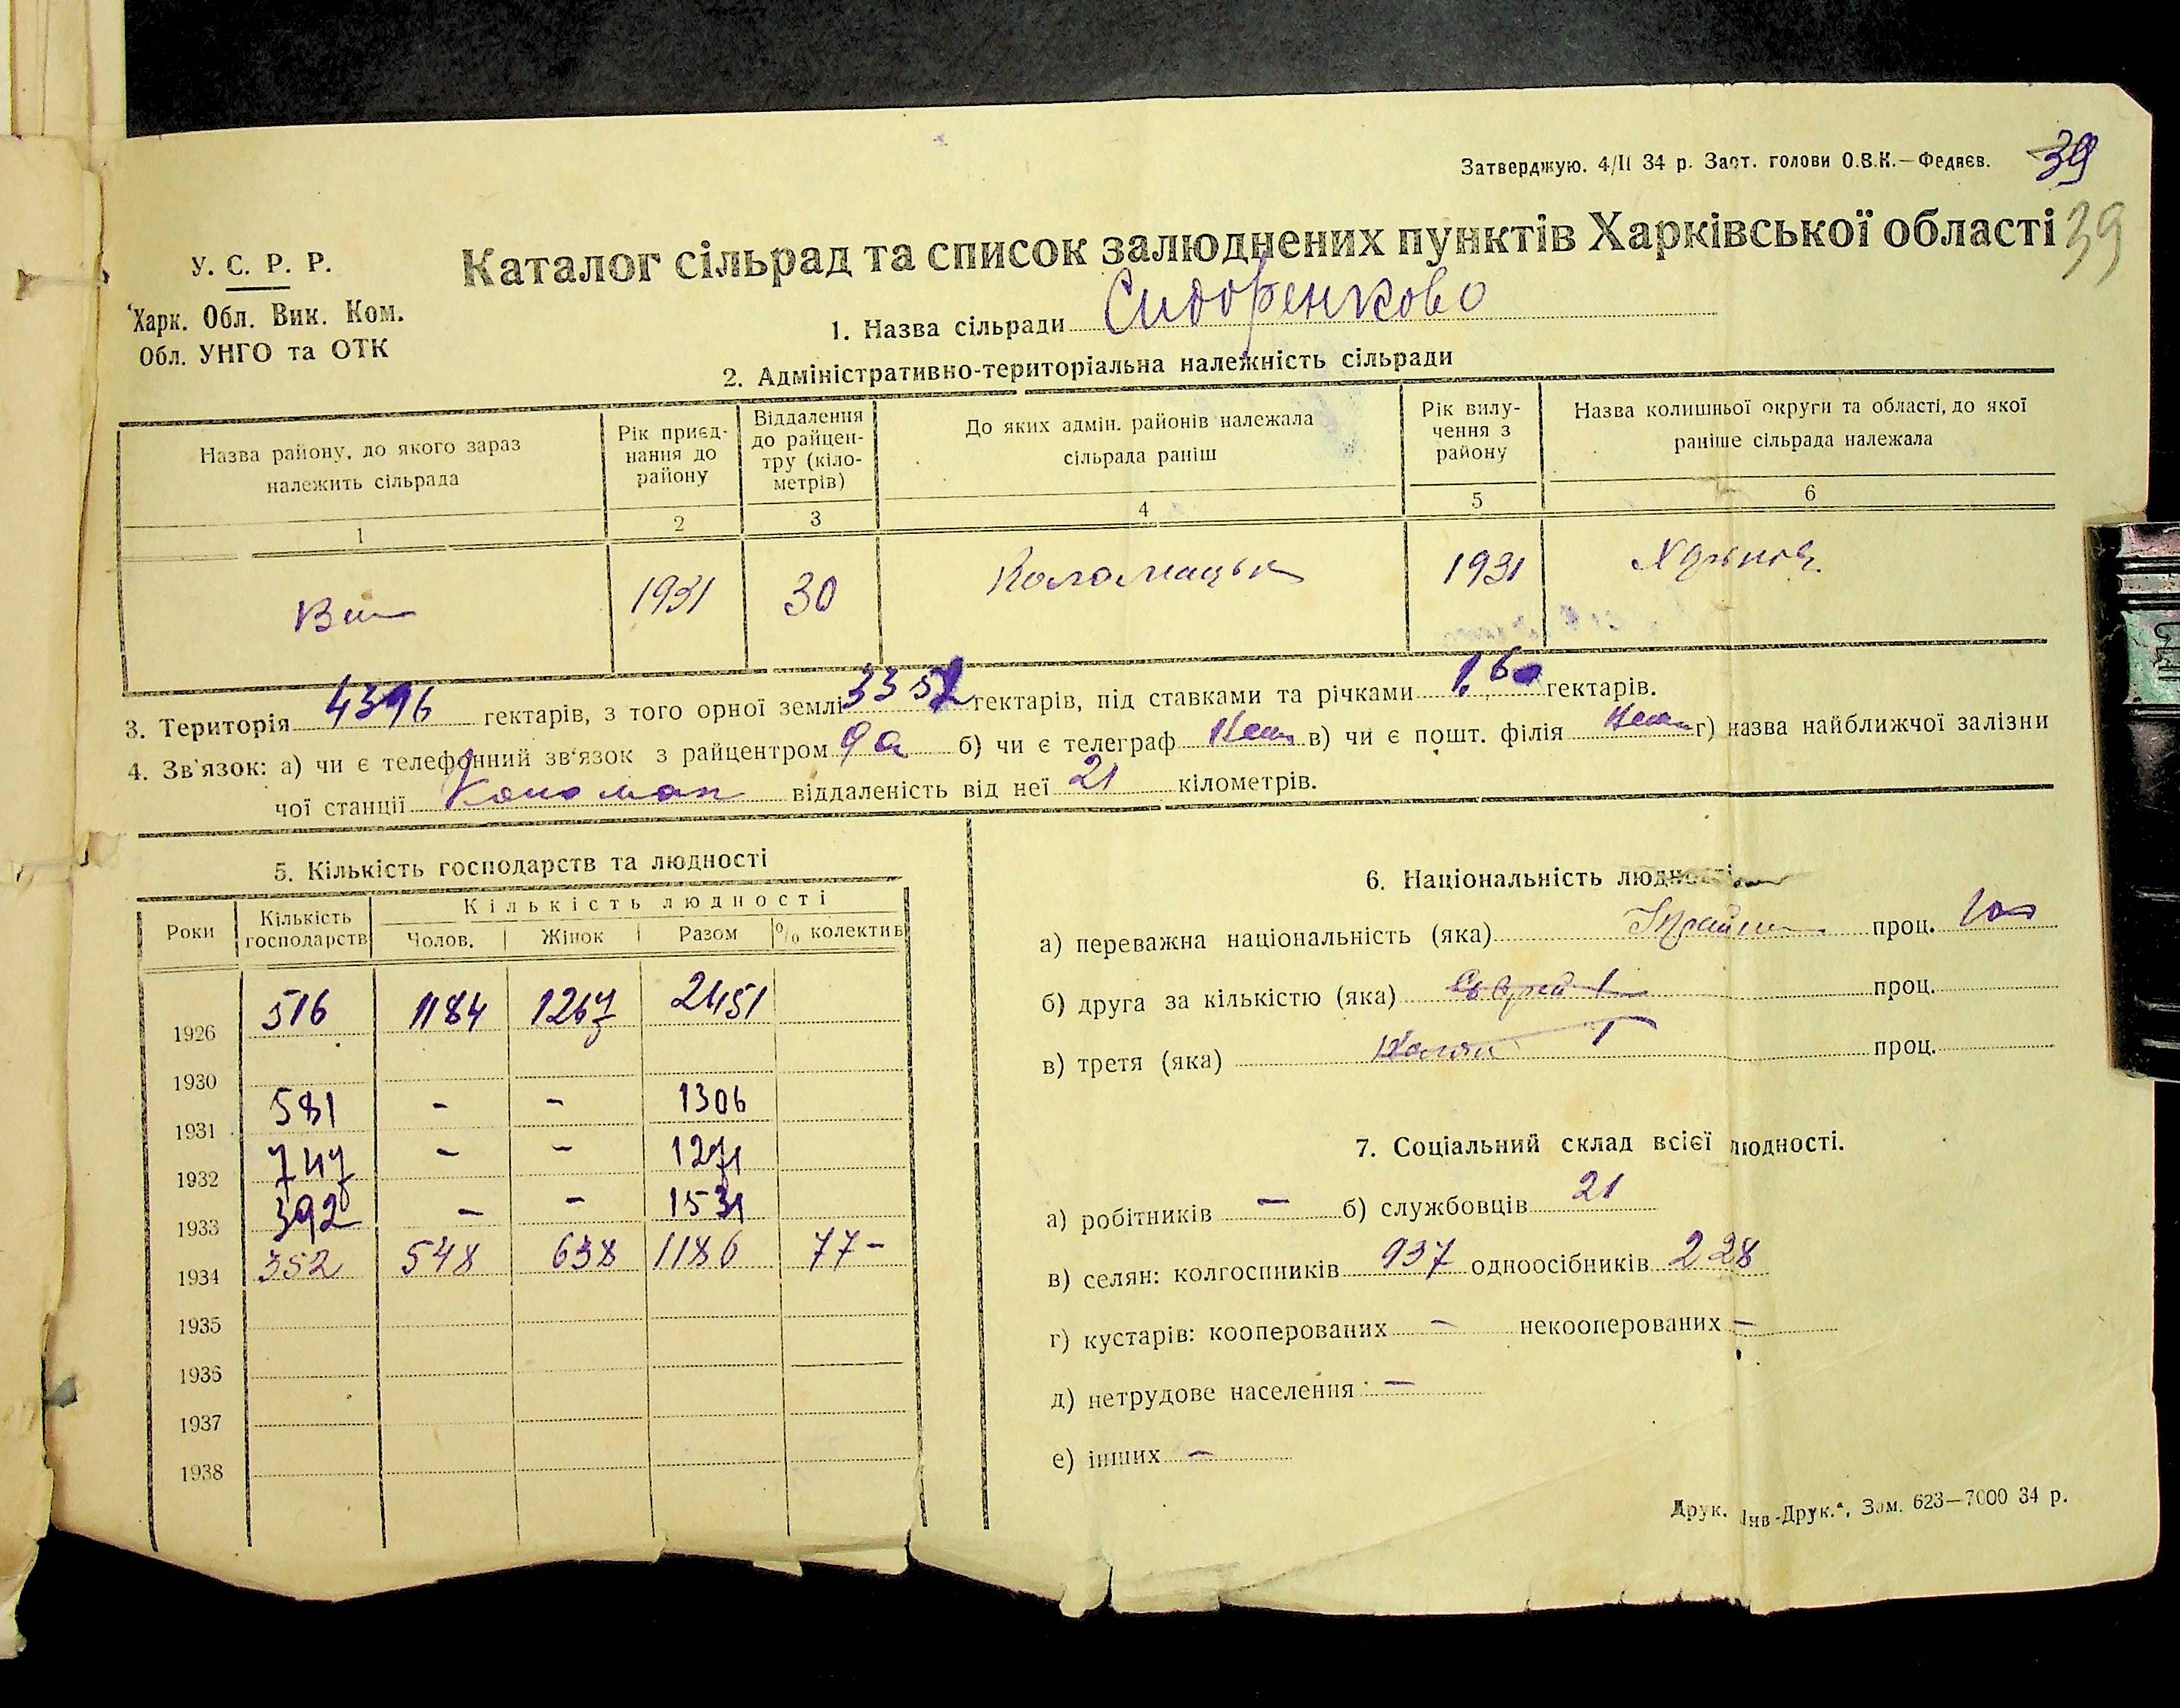 Затверджую. 4/II 34 р. Заст. голови О.В.К.—Федяєв. 39
39
У. С. Р. Р.
Харк. Обл. Вик. Ком.
Обл. УНГО та ОТК
Каталог сільрад та список залюднених пунктів Харківської області
1. Назва сільради Сидоренково
2. Адміністративно-територіальна належність сільради
Назва району, до якого зараз належить сільрада
Рік приєд-нання до району
Віддалення до райцен-тру (кіло-метрів)
До яких адмін. районів належала сільрада раніш
Рік вилу-чення з району
Назва колишньої округи та області, до якої раніше сільрада належала
1 2 3 4 5 6
1931 30 Коломацьк 1931 Харьков.
3. Територія 4396 гектарів, з того орної землі 3352 гектарів, під ставками та річками гектарів.
4. Зв'язок: а) чи є телефонний зв'язок з райцентром да б) чи є телеграф нема в) чи є пошт. філія нема г) назва найближчої залізни
чої станції віддаленість від неї 21 кілометрів.
5. Кількість господарств та людності
Роки Кількість господарств Кількість людності
Чолов. Жінок Разом % колектив
1926 516 1184 1267 2451
1930
1931 581 - - 1306
1932 747 - - 1271
1933 392 - - 1531
1934 352 548 638 1186 77-
1935
1936
1937
1938
6. Національність людності
а) переважна національність (яка) проц. 100
б) друга за кількістю (яка) проц.
в) третя (яка) проц.
7. Соціальний склад всієї людності.
а) робітників — б) службовців 21
в) селян: колгоспників 937 одноосібників 228
г) кустарів: кооперованих — некооперованих —
д) нетрудове населення —
е) інших —
Друк. Інв-Друк.", Зам. 623—7000 34 р.